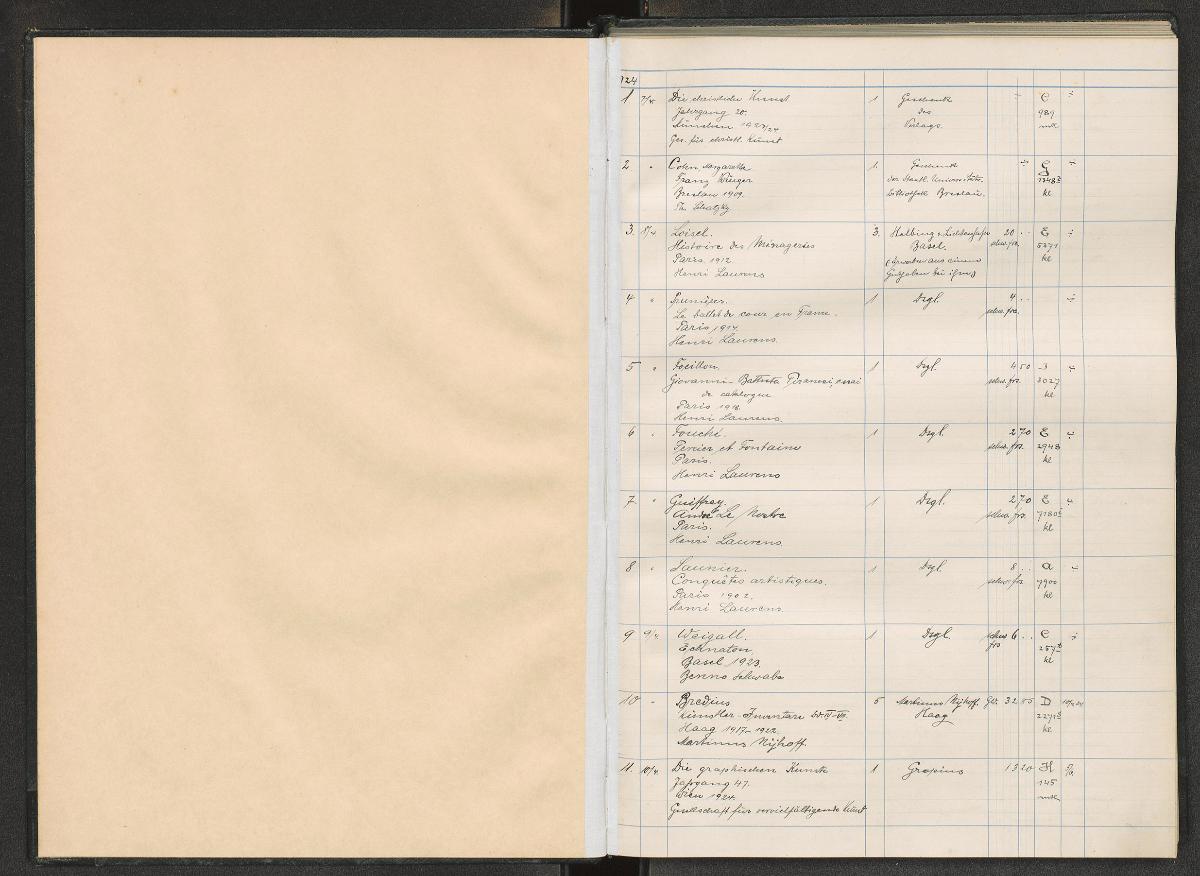 924
1 7/4 Die christliche Kunst 1 Geschenk ÷ C ÷
Jahrgang 20. des 989
München 1923/24 Verlags. mk
Ges. für christl. Kunst
2 " Cohn, Margarethe 1. Geschenk ÷ G ÷
Franz Krüger der Staatl. Universitäts-
Breslau 1909. Bibliothek Breslau. kl
Th. Schatzky
3. 8/4 Loisel. 3. Helbing & Lichtenhahn 20 .. E ÷
Histoire des Ménageries Basel. schw. frs. 5371
Paris 1912 (Erworben aus einem kl
Henri Laurens Guthaben bei ihm)
4 " Prunières. 1 Dsgl. 4 .. ÷
Le ballet de cour en France. schw. frs.
Paris 1914.
Henri Laurens.
5 " Focillon. 1 Dsgl. 4 50 ÷
Giovanni-Battista Piranesi, essai schw. frs. 3027
de catalogue kl
Paris 1918.
Henri Laurens.
6 " Fouché. 1 Dsgl. 2 70 E ÷
Percier et Fontaine schw. frs. 2948
Paris. kl
Henri Laurens
7 " Guiffrey. 1 Dsgl. 2 70 E ÷
André Le Nostre schw. frs.
Paris. kl
Henri Laurens
8 " Saunier. 1 Dsgl. 8 .. a ÷
Conquêtes artistiques. schw. frs. 7900
Paris 1902. kl
Henri Laurens
9 9/4 Weigall. 1 Dsgl. schw. 6 .. C ÷
Echnaton. frs
Basel 1923. kl
Benno Schwabe
10 " Bredius 5 Martinus Nijhoff. 32 85 D
Künstler-Inventare Bd. IV-VII. Haag
Haag 1917-1922. kl
Martinus Nijhoff.
11. 10/4 Die graphischen Künste 1 Gropius 13 20 H
Jahrgang 47. 145
Wien 1924. mk
Gesellschaft für vervielfältigende Kunst